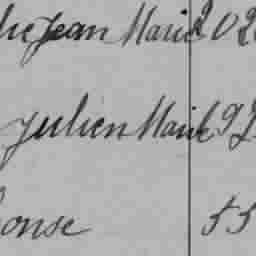 Jean Marie 202
Julien Marie 92
onse 55